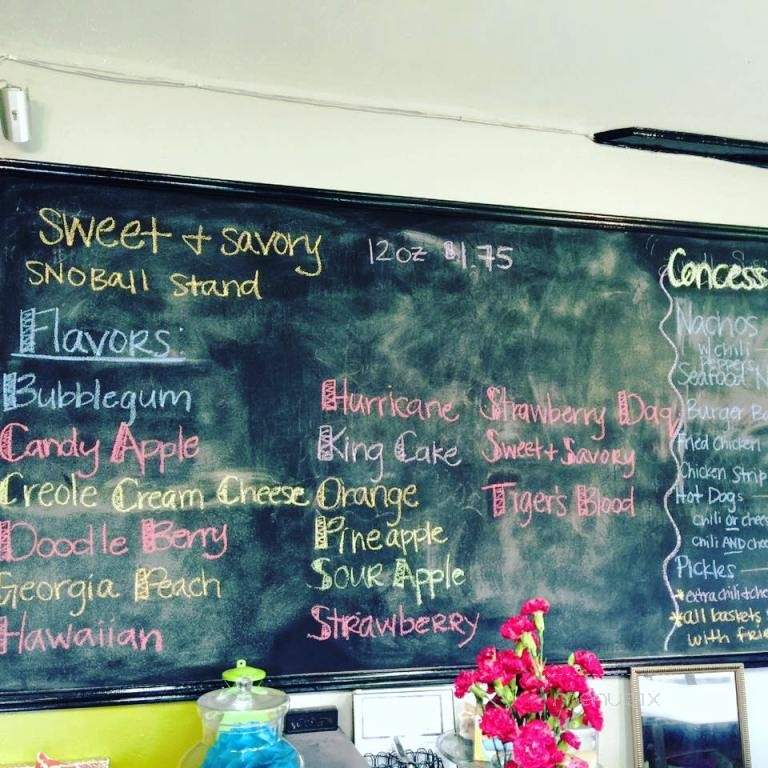 Sweet + Savory
12oz $1.75
SNOBall Stand
Flavors:
Bubblegum
Candy Apple
Creole Cream Cheese
Doodle Berry
Georgia Peach
Hawaiian
Hurricane
King Cake
Orange
Pineapple
Sour Apple
Strawberry
Strawberry Daq
Sweet + Savory
Tiger's Blood
Concess
Nachos
w/chili
peppers
Seafood N
Burger Ba
Fried Chicken
Chicken Strip
Hot Dogs
chili or chees
chili AND chee
Pickles
*extra chili + che
*all baskets
with frie